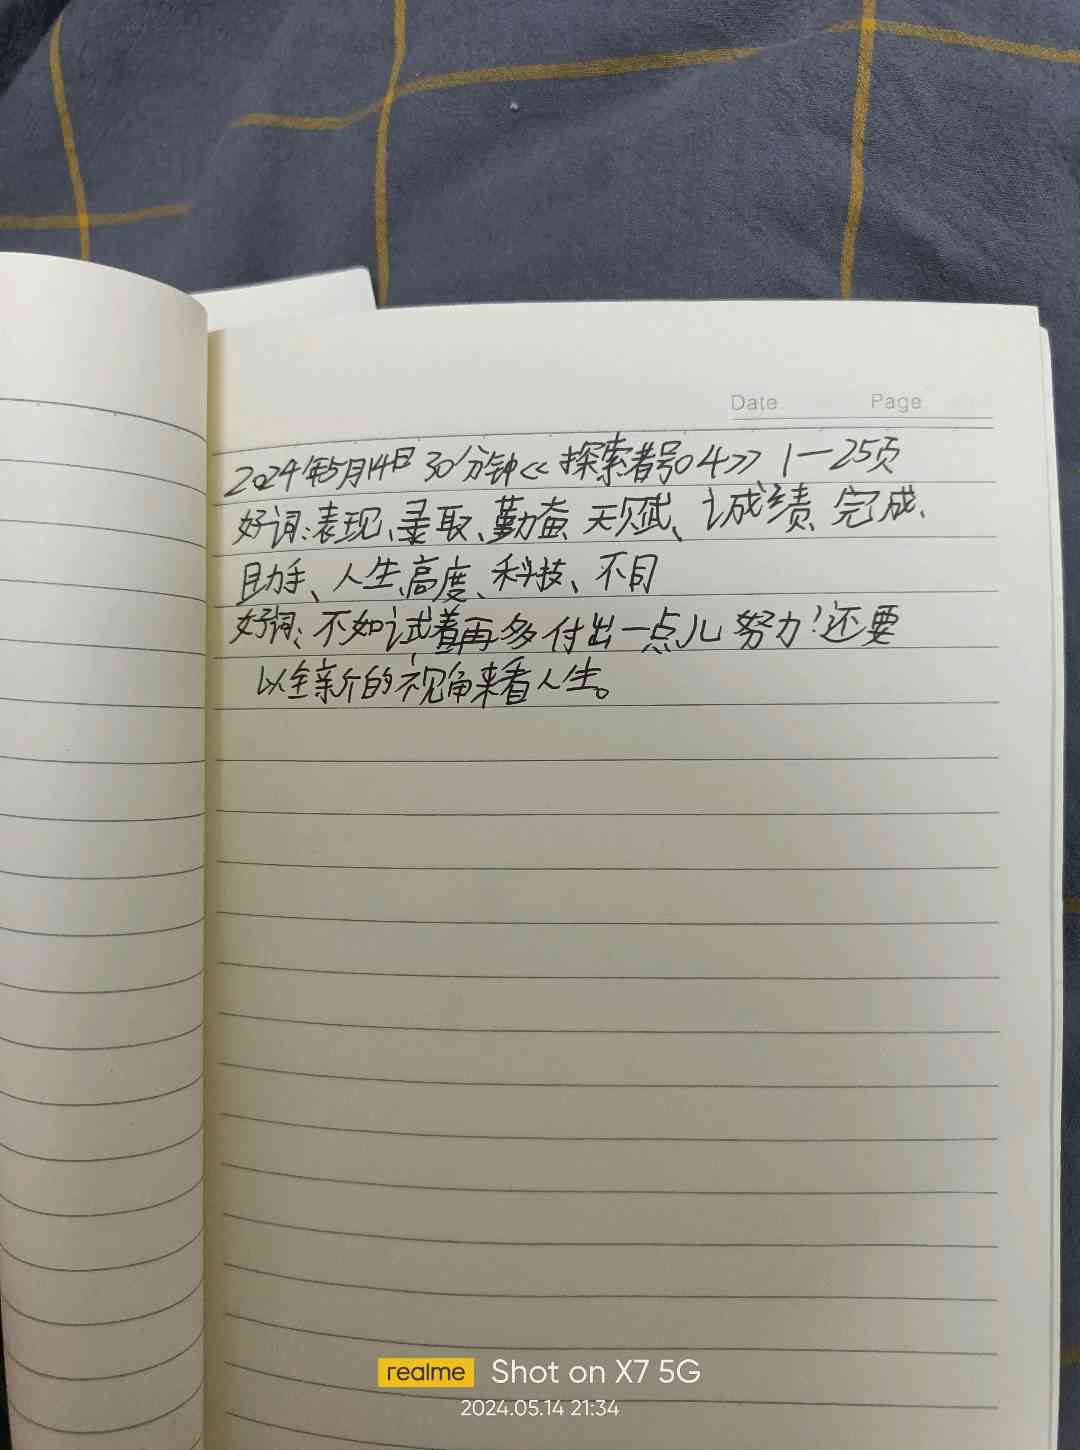 Date
Page
2024年5月14日 30分钟《探索者号04》 1—25页
好词:表现、录取、勤奋 天赋、诚绩、完成、
助手、人生、高度、科技、不同
好词:不如试着再多付出一点儿努力!还要
以全新的视角来看人生。
realme Shot on X7 5G
2024.05.14 21:34